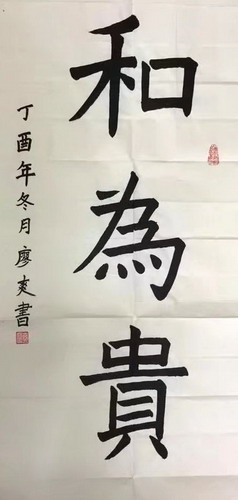 和為貴
丁酉年冬月廖爽書